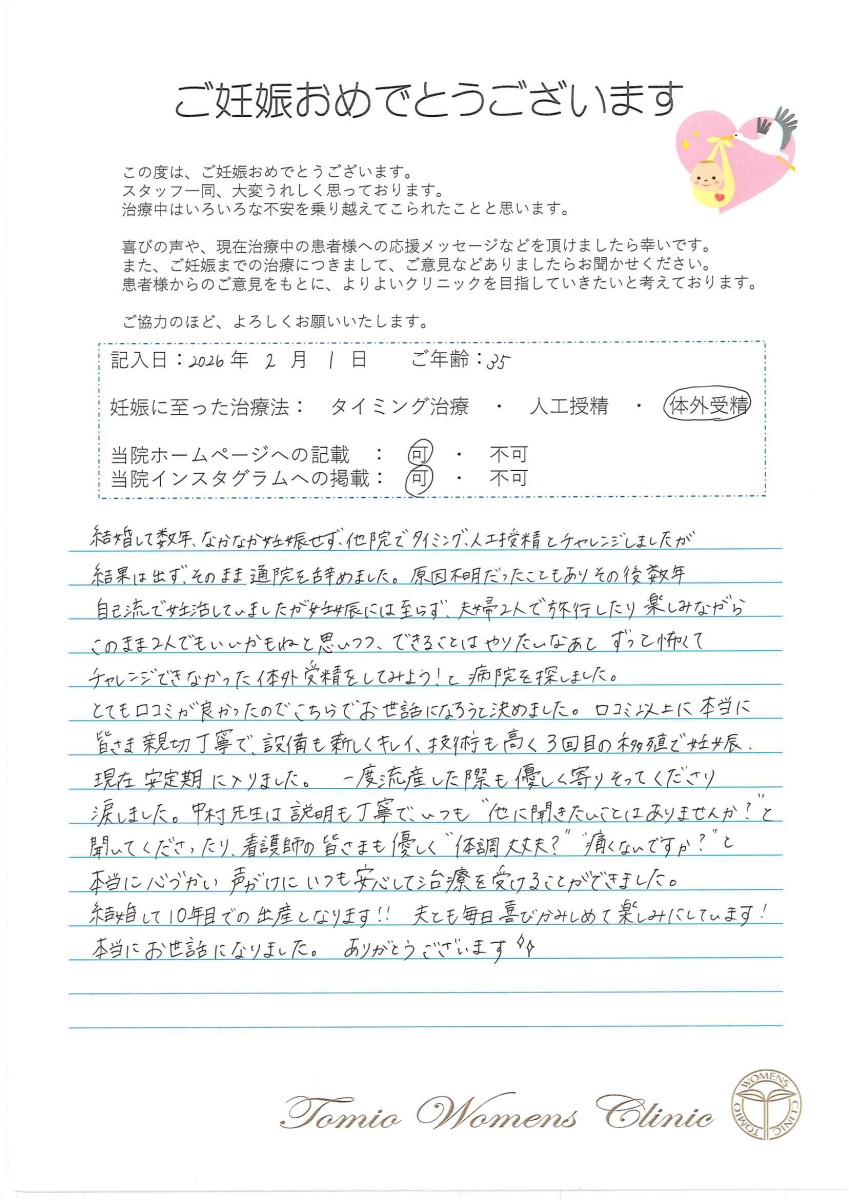 ご妊娠おめでとうございます
この度は、ご妊娠おめでとうございます。
スタッフ一同、大変うれしく思っております。
治療中はいろいろな不安を乗り越えてこられたことと思います。
喜びの声や、現在治療中の患者様への応援メッセージなどを頂けましたら幸いです。
また、ご妊娠までの治療につきまして、ご意見などありましたらお聞かせください。
患者様からのご意見をもとに、よりよいクリニックを目指していきたいと考えております。
ご協力のほど、よろしくお願いいたします。
記入日：2026年 2月 1日 ご年齢：35
妊娠に至った治療法： タイミング治療 ・ 人工授精 ・ 体外受精
当院ホームページへの記載 ： 可 ・ 不可
当院インスタグラムへの掲載： 可 ・ 不可
結婚して数年、なかなか妊娠せず、他院でタイミング、人工授精とチャレンジしましたが
結果は出ず、そのまま通院を辞めました。原因不明だったこともありその後数年
自己流で妊活していましたが妊娠には至らず、夫婦2人で旅行したり楽しみながら
このまま2人でもいいかもねと思いつつ、できることはやりたいなあと ずっと怖くて
チャレンジできなかった体外受精をしてみよう！と病院を探しました。
とても口コミが良かったのでこちらでお世話になろうと決めました。口コミ以上に本当に
皆さま親切丁寧で、設備も新しくキレイ、技術も高く3回目の移植で妊娠、
現在安定期に入りました。 一度流産した際も優しく寄りそってくださり
涙しました。中村先生は説明も丁寧で、いつも“他に聞きたいことはありませんか？”と
聞いてくださったり、看護師の皆さまも優しく“体調大丈夫？”“痛くないですか？”と
本当に心づかい声がけにいつも安心して治療を受けることができました。
結婚して10年目での出産となります!! 夫とも毎日喜びかみしめて楽しみにしています！
本当にお世話になりました。 ありがとうございます
Tomio Womens Clinic
TOMIO WOMENS CLINIC